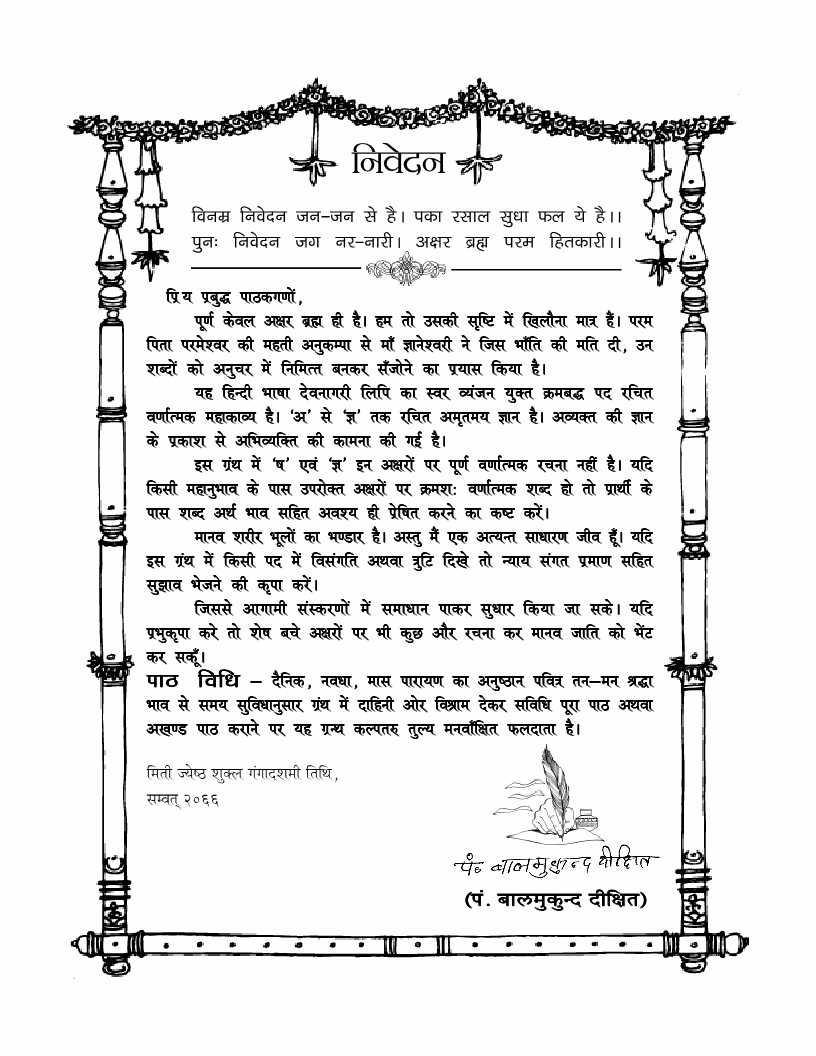 निवेदन
विनम्र निवेदन जन-जन से है। पका रसाल सुधा फल ये है।।
पुनः निवेदन जग नर-नारी। अक्षर ब्रह्म परम हितकारी।।
प्रिय प्रबुद्ध पाठकगणों,
पूर्ण केवल अक्षर ब्रह्म ही है। हम तो उसकी सृष्टि में खिलौना मात्र हैं। परम
पिता परमेश्वर की महती अनुकम्पा से माँ ज्ञानेश्वरी ने जिस भाँति की मति दी, उन
शब्दों को अनुचर में निमित्त बनकर सँजोने का प्रयास किया है।
यह हिन्दी भाषा देवनागरी लिपि का स्वर व्यंजन युक्त क्रमबद्ध पद रचित
वर्णात्मक महाकाव्य है। ‘अ’ से ‘ज्ञ’ तक रचित अमृतमय ज्ञान है। अव्यक्त की ज्ञान
के प्रकाश से अभिव्यक्ति की कामना की गई है।
इस ग्रंथ में ‘ष’ एवं ‘ज्ञ’ इन अक्षरों पर पूर्ण वर्णात्मक रचना नहीं है। यदि
किसी महानुभाव के पास उपरोक्त अक्षरों पर क्रमश: वर्णात्मक शब्द हो तो प्रार्थी के
पास शब्द अर्थ भाव सहित अवश्य ही प्रेषित करने का कष्ट करें।
मानव शरीर भूलों का भण्डार है। अस्तु मैं एक अत्यन्त साधारण जीव हूँ। यदि
इस ग्रंथ में किसी पद में विसंगति अथवा त्रुटि दिखे तो न्याय संगत प्रमाण सहित
सुझाव भेजने की कृपा करें।
जिससे आगामी संस्करणों में समाधान पाकर सुधार किया जा सके। यदि
प्रभुकृपा करे तो शेष बचे अक्षरों पर भी कुछ और रचना कर मानव जाति को भेंट
कर सकूँ।
पाठ विधि – दैनिक, नवधा, मास पारायण का अनुष्ठान पवित्र तन–मन श्रद्धा
भाव से समय सुविधानुसार ग्रंथ में दाहिनी ओर विश्राम देकर सविधि पूरा पाठ अथवा
अखण्ड पाठ कराने पर यह ग्रन्थ कल्पतरु तुल्य मनवाँक्षित फलदाता है।
मिती ज्येष्ठ शुक्ल गंगादशमी तिथि,
सम्वत् २०६६
पं० बालमुकुन्द दीक्षित
(पं. बालमुकुन्द दीक्षित)